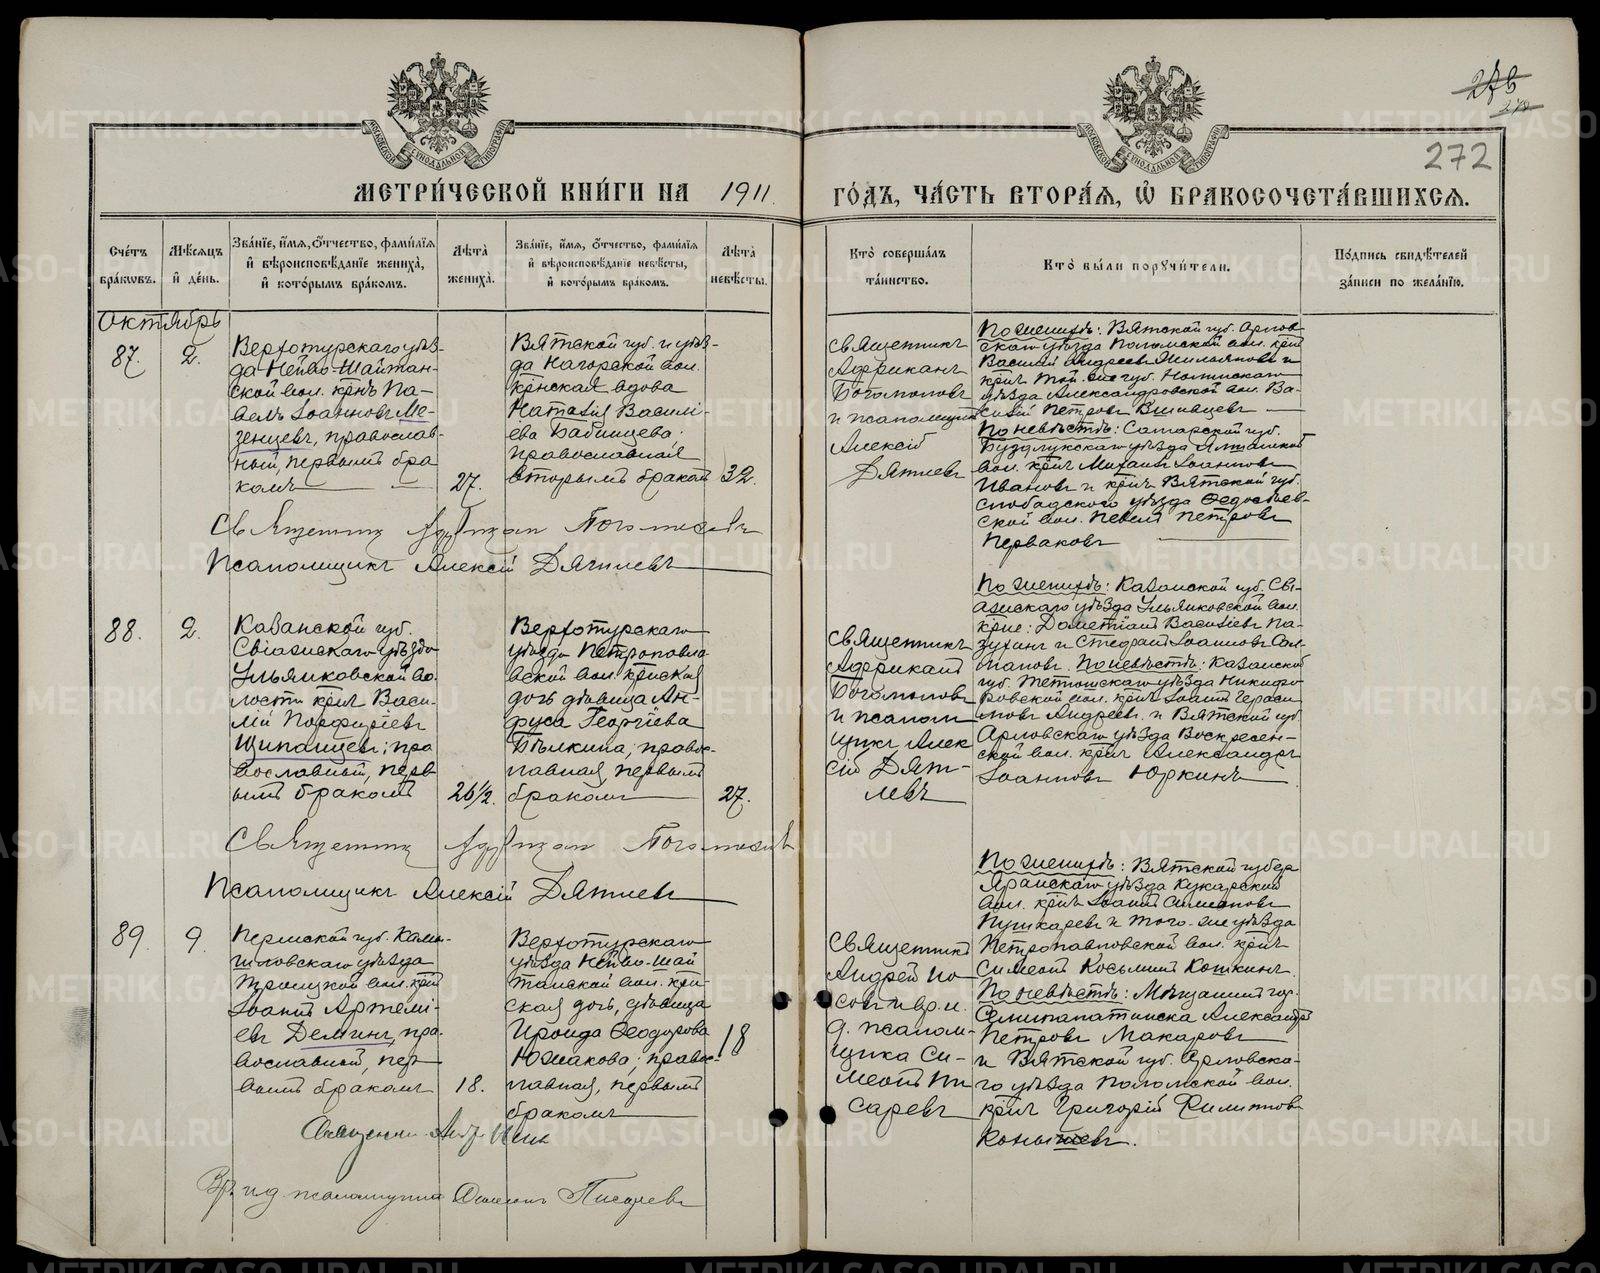 276
270
272
МЕТРИ́ЧЕСКОЙ КНИ́ГИ НА 1911. ГО́ДЪ, ЧА́СТЬ ВТОРА́Я, Ѿ БРАКОСОЧЕТА́ВШИХСЯ.
Сче́тъ бра́ковъ.
Мѣ́сяцъ и҆ де́нь.
Зва́нїе, и҆́мя, ѻ҆́тчество, фами́лїя
и҆ вѣроисповѣ́данїе жениха̀,
и҆ кото́рымъ бра́комъ.
Лѣта̀ жениха̀.
Зва́нїе, и҆́мя, ѻ҆́тчество, фами́лїя
и҆ вѣроисповѣ́данїе невѣ́сты,
и҆ кото́рымъ бра́комъ.
Лѣта̀ невѣ́сты.
Кто̀ соверша́лъ та́инство.
Кто̀ бы́ли порꙋчи́тели.
По́дпись свидѣ́телей
за́писи по жела́нїю.
Октябрь
87.
2.
Верхотурскаго уѣз-
да Нейво-Шайтан-
ской вол. крнъ Па-
велъ Іоанновъ Ме-
зенцевъ, православ-
ный, первымъ бра
комъ
27.
Вятской губ. и уѣз-
да Нагорской вол.
крнская вдова
Наталія Василі-
ева Бабинцева;
православная
вторымъ бракомъ
32.
Священникъ
Африканъ
Богомоловъ
и псаломщикъ
Алексій
Дятлевъ
По женихѣ: Вятской губ. Орлов
скаго уѣзда Поломской вол. крн
Василій Андреевъ и
крнъ той-же губ. Нолинскаго
уѣзда Александровской вол. Ва-
силій Петровъ Вшивцевъ
По невѣстѣ: Самарской губ.
Бузулукскаго уѣзда
вол. крнъ Михаилъ Іоанновъ
Ивановъ и крнъ Вятской губ.
Слободского уѣзда Ѳедосѣев-
ской вол. Петровъ
Перваковъ
Священникъ Африканъ Богомоловъ
Псаломщикъ Алексій Дятлевъ
88.
2.
Казанской губ.
Свіяжскаго уѣзда
Ульянковской во
лости крнъ Васи-
лій Порфиріевъ
Щипанцевъ; пра
вославный, перв
ымъ бракомъ
26½.
Верхотурскаго
уѣзда Петропавло
вской вол. крнская
дочь дѣвица Ан-
фуса Георгіева
Бѣлкина; правос-
лавная, первымъ
бракомъ
27.
Священникъ
Африканъ
Богомоловъ
и псалом
щикъ Алек
сій Дят-
левъ
По женихѣ: Казанской губ. Сві-
яжскаго уѣзда Ульянковской вол.
крне: Дометіанъ Василіевъ Ла-
зухинъ и Стефанъ Іоанновъ
По невѣстѣ: Казанской
губ. Тетюшскаго уѣзда Никифо
ровской вол. крнъ Іоаннъ Гераси
мовъ Андреевъ и Вятской губ.
Орловскаго уѣзда Воскресен-
ской вол. крнъ Александръ
Іоанновъ Юркинъ
Священникъ Африканъ Богомоловъ
Псаломщикъ Алексій Дятлевъ
89.
9.
Пермской губ. Камы-
шловскаго уѣзда
Троицкой вол. крн
Іоаннъ Артемі-
евъ Деминъ, пра-
вославный, пер
вымъ бракомъ
18.
Верхотурскаго
уѣзда Нейво-Шай
танской вол. крн-
ская дочь, дѣвица
Ироида Ѳеодорова
Южакова; правос-
лавная, первымъ
бракомъ
18
Священникъ
Андрей Но
и вр. и.
д. псалом-
щика Си-
меонъ Пи-
саревъ
По женихѣ: Вятской губер
Яранскаго уѣзда Кукарской
вол. крнъ Іоаннъ Симеоновъ
Пушкаревъ и того-же уѣзда
Петропавловской вол. крнъ
Симеонъ Косьминъ Кошкинъ.
По невѣстѣ: Мѣщанинъ гор.
Семипалатинска Александръ
Петровъ Макаровъ
и Вятской губ. Орловска-
го уѣзда Поломской вол.
крнъ Григорій Филиппов
Конышевъ.
Священникъ Андр.
Вр. и д псаломщика Симеонъ Писаревъ
METRIKI.GASO-URAL.RU